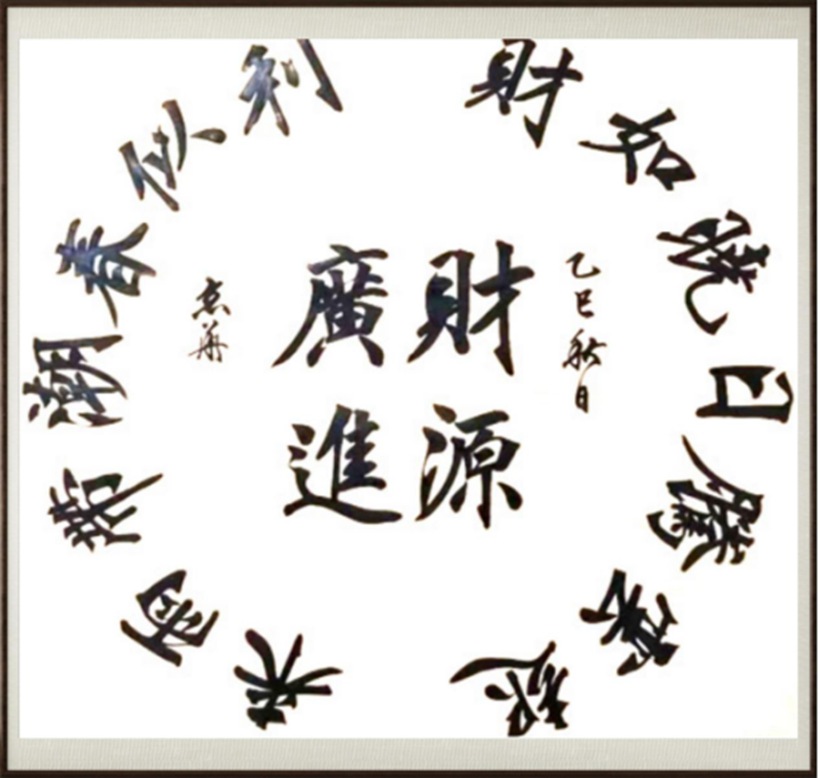 財源廣進
乙巳秋日
財如曉日騰雲起
利似春潮帶雨來